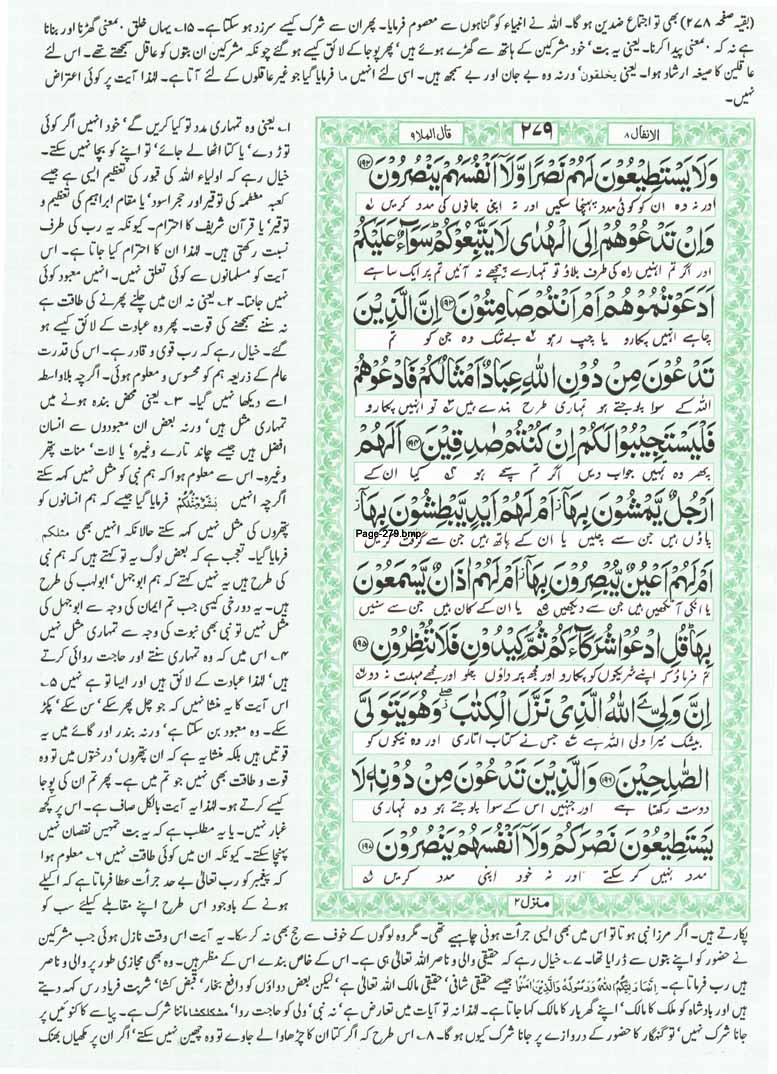 (بقیہ صفحہ ۲۷۸) بھی تو اجتماع ضدین ہو گا۔ اللہ نے انبیاء کو گناہوں سے معصوم فرمایا۔ پھر ان سے شرک کیسے سرزد ہو سکتا ہے۔ ۱۵؎ یہاں خلق ، معنی گھڑنا اور بنانا
ہے نہ کہ ، معنی پیدا کرنا۔ یعنی یہ بت، خود مشرکین کے ہاتھ سے گھڑے ہوئے ہیں، پھر پوجا کے لائق کیسے ہو گئے چونکہ مشرکین ان بتوں کو عاقل سمجھتے تھے۔ اس لئے
عاقلین کا صیغہ ارشاد ہوا۔ یعنی یخلقون، ورنہ وہ بے جان اور بے سمجھ ہیں۔ اسی لئے انہیں ما فرمایا گیا جو غیر عاقلوں کے لئے آتا ہے۔ لہٰذا آیت پر کوئی اعتراض
نہیں۔
الانفال ۸
۲۷۹
قال الملا ۹
وَلَا يَسْتَطِيْعُوْنَ لَهُمْ نَصْرًا وَّلَآ اَنْفُسَهُمْ يَنْصُرُوْنَ ۱۹۲
اور نہ وہ ان کو کوئی مدد پہنچا سکیں اور نہ اپنی جانوں کی مدد کریں
وَاِنْ تَدْعُوْهُمْ اِلَى الْهُدٰى لَا يَتَّبِعُوْكُمْ ؕ سَوَآءٌ عَلَيْكُمْ
اور اگر تم انہیں راہ کی طرف بلاؤ تو تمہارے پیچھے نہ آئیں تم پر ایک سا ہے
اَدَعَوْتُمُوْهُمْ اَمْ اَنْتُمْ صَامِتُوْنَ ۱۹۳ اِنَّ الَّذِيْنَ
چاہے انہیں پکارو یا چپ رہو بے شک وہ جن کو تم
تَدْعُوْنَ مِنْ دُوْنِ اللّٰهِ عِبَادٌ اَمْثَالُكُمْ فَادْعُوْهُمْ
اللہ کے سوا پوجتے ہو تمہاری طرح بندے ہیں تو انہیں پکارو
فَلْيَسْتَجِيْبُوْا لَكُمْ اِنْ كُنْتُمْ صٰدِقِيْنَ ۱۹۴ اَلَهُمْ
پھر وہ تمہیں جواب دیں اگر تم سچے ہو کیا ان کے
اَرْجُلٌ يَّمْشُوْنَ بِهَآ ؗ اَمْ لَهُمْ اَيْدٍ يَّبْطِشُوْنَ بِهَآ ؗ
پاؤں ہیں جن سے چلیں یا ان کے ہاتھ ہیں جن سے گرفت کریں
Page-279.bmp
اَمْ لَهُمْ اَعْيُنٌ يُّبْصِرُوْنَ بِهَآ ؗ اَمْ لَهُمْ اٰذَانٌ يَّسْمَعُوْنَ
یا انکی آنکھیں ہیں جن سے دیکھیں یا ان کے کان ہیں جن سے سنیں
بِهَا ؕ قُلِ ادْعُوْا شُرَكَآءَكُمْ ثُمَّ كِيْدُوْنِ فَلَا تُنْظِرُوْنِ ۱۹۵
تم فرماؤ کہ اپنے شریکوں کو پکارو اور مجھ پہ داؤں چلو اور مجھے مہلت نہ دو
اِنَّ وَلِيِّ ىَ اللّٰهُ الَّذِيْ نَزَّلَ الْكِتٰبَ ۖ وَهُوَ يَتَوَلَّى
بیشک میرا ولی اللہ ہے جس نے کتاب اتاری اور وہ نیکوں کو
الصّٰلِحِيْنَ ۱۹۶ وَالَّذِيْنَ تَدْعُوْنَ مِنْ دُوْنِهٖ لَا
دوست رکھتا ہے اور جنہیں اس کے سوا پوجتے ہو وہ تمہاری
يَسْتَطِيْعُوْنَ نَصْرَكُمْ وَلَآ اَنْفُسَهُمْ يَنْصُرُوْنَ ۱۹۷
مدد نہیں کر سکتے اور نہ خود اپنی مدد کریں
منزل ۲
۱؎ یعنی وہ تمہاری مدد تو کیا کریں گے، خود انہیں اگر کوئی
توڑ دے، یا کتا اٹھا لے جائے، تو اپنے کو بچا نہیں سکتے۔
خیال رہے کہ اولیاء اللہ کی قبور کی تعظیم ایسی ہے جیسے
کعبہ معظمہ کی توقیر اور حجر اسود، یا مقام ابراہیم کی تعظیم و
توقیر، یا قرآن شریف کا احترام۔ کیونکہ یہ رب کی طرف
نسبت رکھتی ہیں۔ لہٰذا ان کا احترام کیا جاتا ہے۔ اس
آیت کو مسلمانوں سے کوئی تعلق نہیں۔ انہیں معبود کوئی
نہیں جانتا۔ ۲؎ یعنی نہ ان میں چلنے پھرنے کی طاقت ہے
نہ سننے سمجھنے کی قوت۔ پھر وہ عبادت کے لائق کیسے ہو
گئے۔ خیال رہے کہ رب قوی و قادر ہے۔ اس کی قدرت
عالم کے ذریعہ ہم کو محسوس و معلوم ہوئی۔ اگرچہ بلاواسطہ
اسے دیکھا نہیں گیا۔ ۳؎ یعنی محض بندہ ہونے میں
تمہاری مثل ہیں، ورنہ بعض ان معبودوں سے انسان
افضل ہیں جیسے چاند تارے وغیرہ، یا لات، منات پتھر
وغیرہ۔ اس سے معلوم ہوا کہ ہم نبی کو مثل نہیں کہہ سکتے
اگرچہ انہیں بشر مثلکم فرمایا گیا جیسے کہ ہم انسانوں کو
پتھروں کی مثل نہیں کہہ سکتے حالانکہ انہیں بھی مثلکم
فرمایا گیا۔ تعجب ہے کہ بعض لوگ یہ تو کہتے ہیں کہ ہم نبی
کی طرح ہیں یہ نہیں کہتے کہ ہم ابوجہل، ابولہب کی طرح
ہیں۔ یہ دورخی کیسی جب تم ایمان کی وجہ سے ابوجہل کی
مثل نہیں تو نبی بھی نبوت کی وجہ سے تمہاری مثل نہیں
۴؎ اس میں کہ وہ تمہاری سنتے اور حاجت روائی کرتے
ہیں، لہٰذا عبادت کے لائق ہیں اور ایسا تو ہے نہیں ۵؎
اس آیت کا یہ منشا نہیں کہ جو چل پھر سکے، سن سکے، پکڑ
سکے۔ وہ معبود بن سکتا ہے، ورنہ بندر اور گائے میں یہ
قوتیں ہیں بلکہ منشا یہ ہے کہ ان پتھروں، درختوں میں تو وہ
قوت و طاقت بھی نہیں جو تم میں ہے۔ پھر تم ان کی پوجا
کیسے کرتے ہو۔ لہٰذا یہ آیت بالکل صاف ہے۔ اس پر کچھ
غبار نہیں۔ یا یہ مطلب ہے کہ یہ بت تمہیں نقصان نہیں
پہنچا سکتے۔ کیونکہ ان میں کوئی طاقت نہیں ۶؎ معلوم ہوا
کہ پیغمبر کو رب تعالیٰ بے حد جرأت عطا فرماتا ہے کہ اکیلے
ہونے کے باوجود اس طرح اپنے مقابلے کیلئے سب کو
پکارتے ہیں۔ اگر مرزا نبی ہوتا تو اس میں بھی ایسی جرأت ہونی چاہیے تھی۔ مگر وہ لوگوں کے خوف سے حج بھی نہ کر سکا۔ یہ آیت اس وقت نازل ہوئی جب مشرکین
نے حضور کو اپنے بتوں سے ڈرایا تھا۔ ۷؎ خیال رہے کہ حقیقی والی و ناصر اللہ تعالیٰ ہی ہے۔ اس کے خاص بندے اس کے مظہر ہیں۔ وہ بھی مجازی طور پر والی و ناصر
ہیں رب فرماتا ہے۔ اِنَّمَا وَلِيُّكُمُ اللّٰهُ وَرَسُوْلُهٗ وَالَّذِيْنَ اٰمَنُوْا جیسے حقیقی شافی، حقیقی مالک اللہ تعالیٰ ہے، لیکن بعض دواؤں کو دافع بخار، قبض کشا، شربت فریاد رس کہہ دیتے
ہیں اور بادشاہ کو ملک کا مالک، اپنے گھر بار کا مالک کہا جاتا ہے۔ لہٰذا نہ تو آیات میں تعارض ہے، نہ نبی، ولی کو حاجت روا، مشکلکشا ماننا شرک ہے۔ پیاسے کا کنوئیں پر
جانا شرک نہیں، تو گنہگار کا حضور کے دروازے پر جانا شرک کیوں ہو گا۔ ۸؎ اس طرح کہ اگر کتا ان کا چڑھاوا لے جاوے تو وہ چھین نہیں سکتے، اگر ان پر مکھیاں بھنک